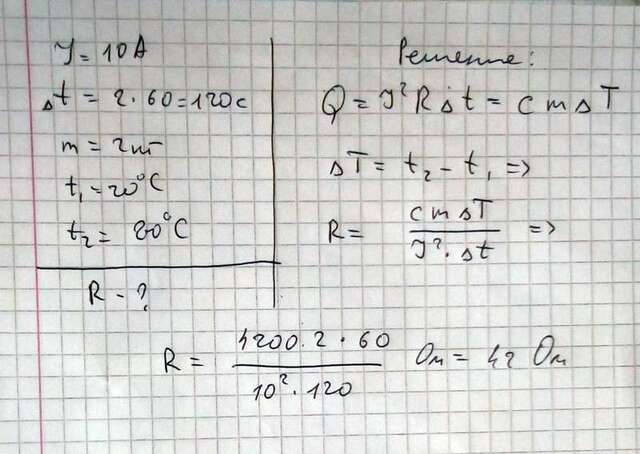 I = 10 A
Δt = 2 · 60 = 120 c
m = 2 кг
t₁ = 20°C
t₂ = 80°C
R - ?
Решение:
Q = I² R Δt = c m Δ T
ΔT = t₂ - t₁ =>
R = c m ΔT / I² · Δt =>
R = 4200 · 2 · 60 / 10² · 120 Ом = 42 Ом